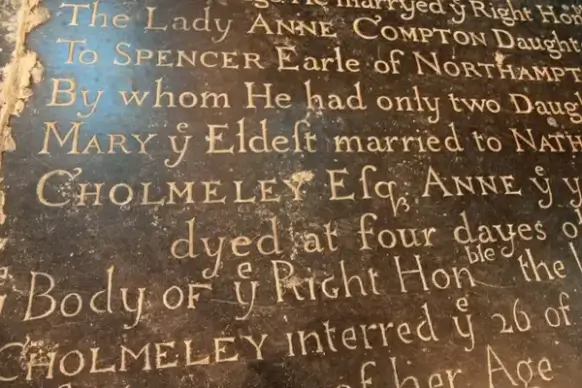 He marryed yͤ Right Hon
The Lady ANNE COMPTON Daught
To SPENCER Earle of NORTHAMPT
By whom He had only two Daug
MARY yͤ Eldeſt married to NATH
CHOLMELEY Eſqꝫ ANNE yͤ y
dyed at four dayes o
Body OF yͤ Right Honble the
CHOLMELEY interred yͤ 26 of
of her Age